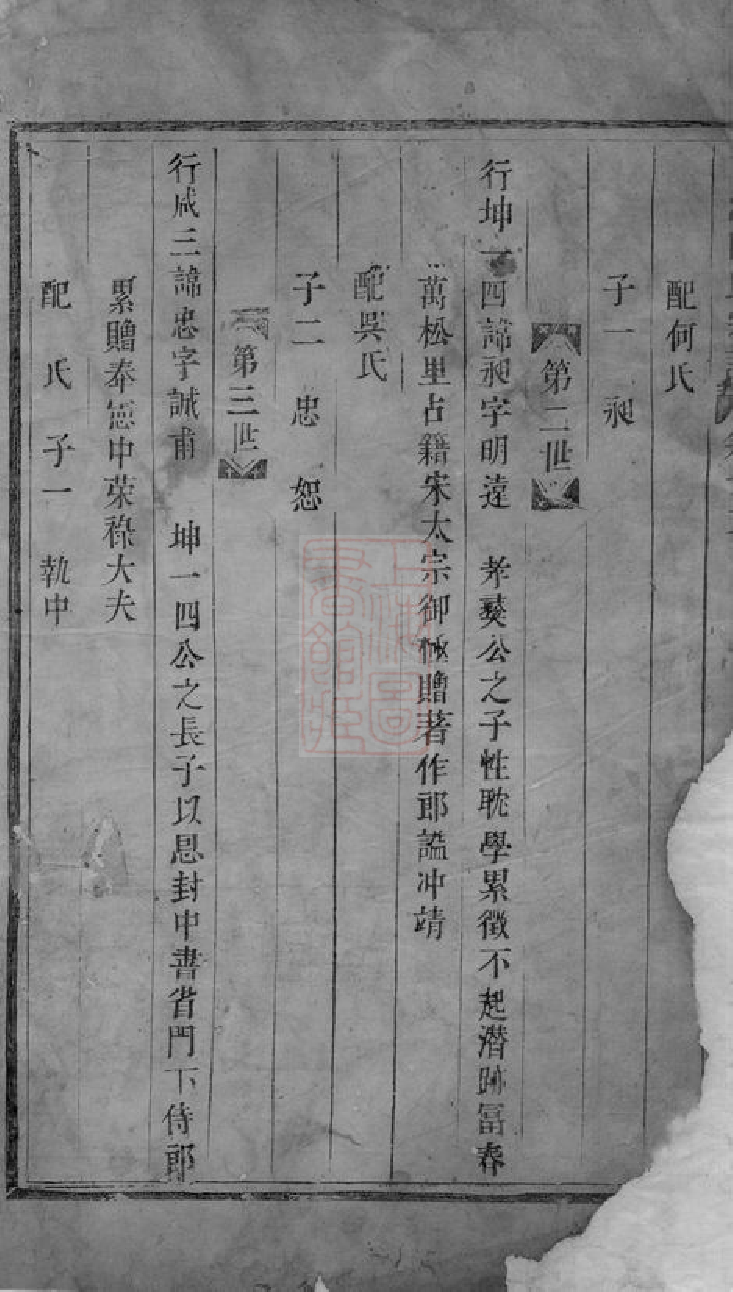 配何氏
子一 昶
第二世
行坤一四諱昶字明遠 孝蓺公之子性耽學累徵不起潛跡富春
萬松里占籍宋太宗御極贈著作郎謚冲靖
配吳氏
子二 忠 恕
第三世
行咸三諱忠字誠甫 坤一四公之長子以恩封中書省門下侍郎
累贈奉憲中荣祿大夫
配 氏 子一 執中
上海圖書館藏